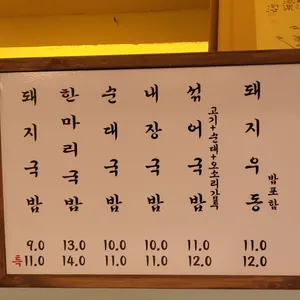 돼지국밥
한마리국밥
순대국밥
내장국밥
섞어국밥
고기+순대+오소리감투
돼지우동
밥포함
9.0 13.0 10.0 10.0 11.0 11.0
특 11.0 14.0 11.0 11.0 12.0 12.0